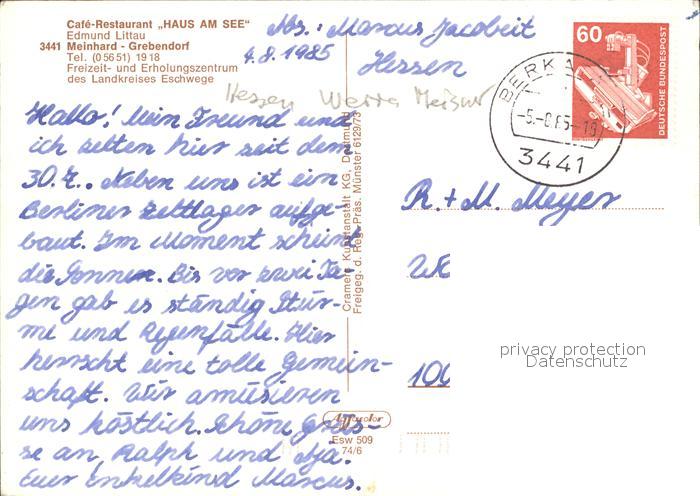 Café-Restaurant „HAUS AM SEE"
Edmund Littau
3441 Meinhard - Grebendorf
Tel. (05651) 1918
Freizeit- und Erholungszentrum
des Landkreises Eschwege
Abs.: Marcus Jacobeit
4.8.1985 Hessen
Hessen Werra Meisner
Hallo! Mein Freund und
ich zelten hier seit dem
30.7.. Neben uns ist ein
Berliner Zeltlager aufge-
baut. Im Moment scheint
die Sonne. Bis vor zwei Ta-
gen gab es ständig Stür-
me und Regenfälle. Hier
herrscht eine tolle Gemein-
schaft. Wir amüsieren
uns köstlich. Schöne Grüs-
se an Ralph und Aja.
Euer Enkelkind Marcus.
Cramers Kunstanstalt KG, Dortmund
Freigeg. d. Reg. Präs. Münster 6129/73
Agfacolor
Esw 509
74/6
60
DEUTSCHE BUNDESPOST
BERKA
-5.-8.85-18
3441
R. + M. Meyer
100
privacy protection
Datenschutz